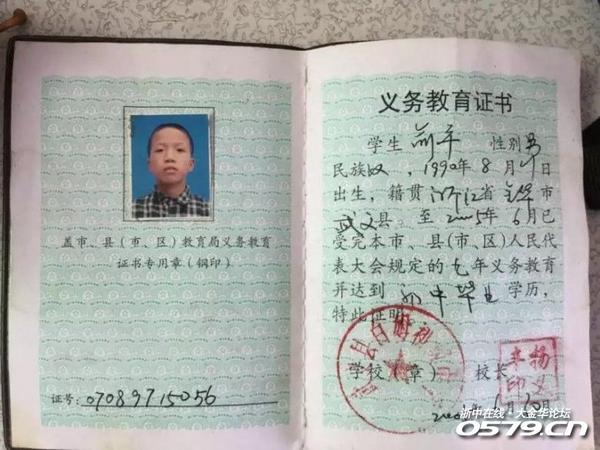 盖市、县(市、区)教育局义务教育
证书专用章(钢印)
证号: 07089715056
义务教育证书
学生 平 性别 男
民族 汉 , 1990年 8 月 日
出生, 籍贯 浙江 省 金华 市
武义 县。至 2005 年 6 月已
受完本市、县(市、区)人民代
表大会规定的 九 年义务教育
并达到 初中毕业 学历,
特此证明。
学校(章) 校长
杨义印
浙中在线·大金华论坛
0579.cn